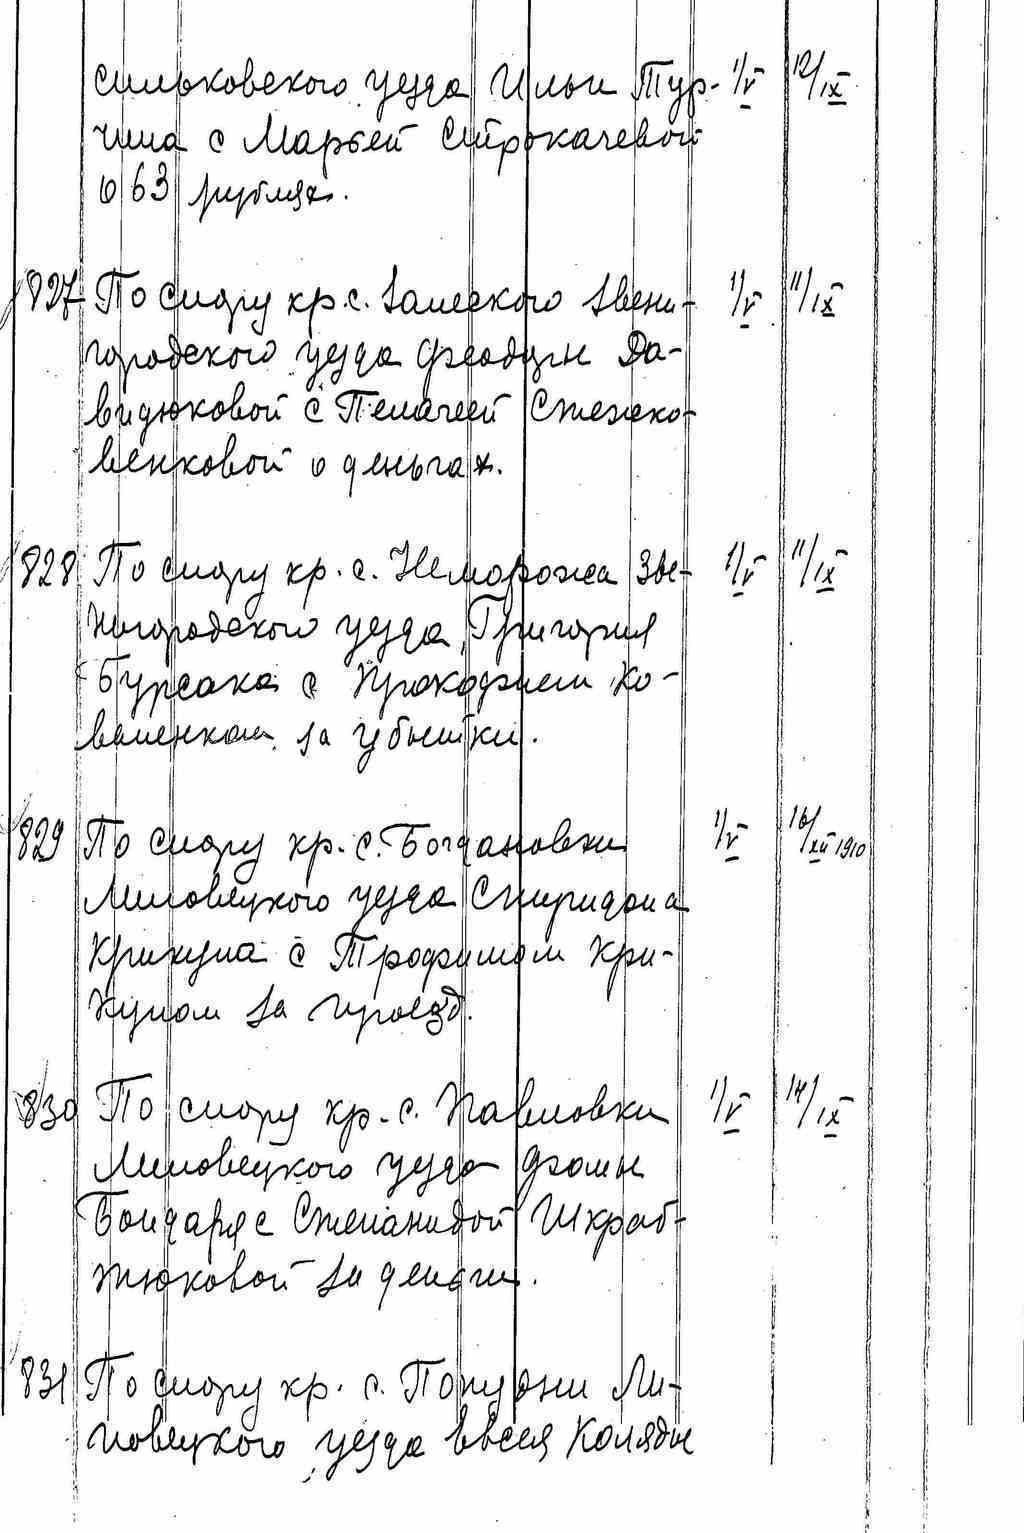 сильковского уезда Ильи Тур- 1/V 12/IX
чина с Марьей Строкачевой
о 63 рублях.
827 По спору кр. с. Залесского Звени- 1/V 11/IX
городского уезда Феодоры Да-
видюковой с Пелагеей Стехеко-
венковой о деньгах.
828 По спору кр. с. Неморожа Зве- 1/V 11/IX
нигородского уезда, Григория
Бурсака с Прокофием Ко-
валенком за убытки.
829 По спору кр. с. Богдановки 1/V 16/XII 1910
Липовецкого уезда Спиридона
Крикуна с Трофимом Кри-
куном за проезд.
830 По спору кр. с. Павловки 1/V 14/IX
Липовецкого уезда Фомы
Бондаря с Степанидой Шкраб-
тюковой за деньги.
831 По спору кр. с. Попудни Ли-
повецкого уезда Евсея Коляды